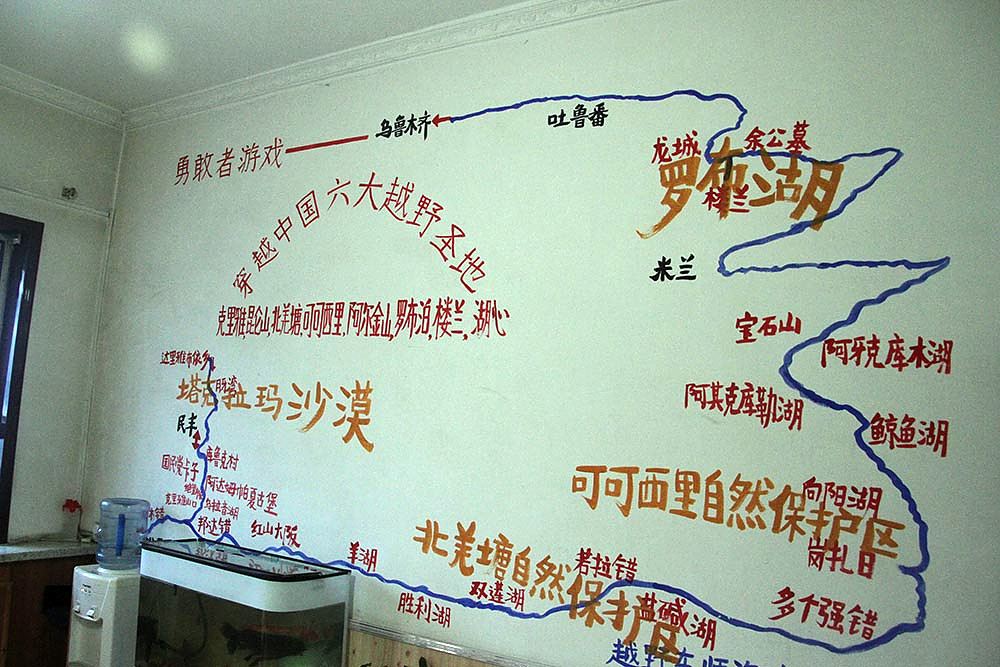 乌鲁木齐
吐鲁番
勇敢者游戏
龙城
余公墓
罗布湖
楼兰
穿越中国六大越野圣地
米兰
克里雅,昆仑山,北羌塘,可可西里,阿尔金山,罗布泊,楼兰,湖心
宝石山
阿牙克库木湖
达里雅布依乡
塔克拉玛沙漠
阿其克库勒湖
鲸鱼湖
民丰
库鲁克村
国民党卡子
阿达姆帕夏古堡
可可西里自然保护区
向阳湖
克里雅山口
乌拉音湖
邦达错
红山大阪
北羌塘自然保护区
羊湖
若拉错
岗扎日
双莲湖
胜利湖
盐碱湖
多个强错